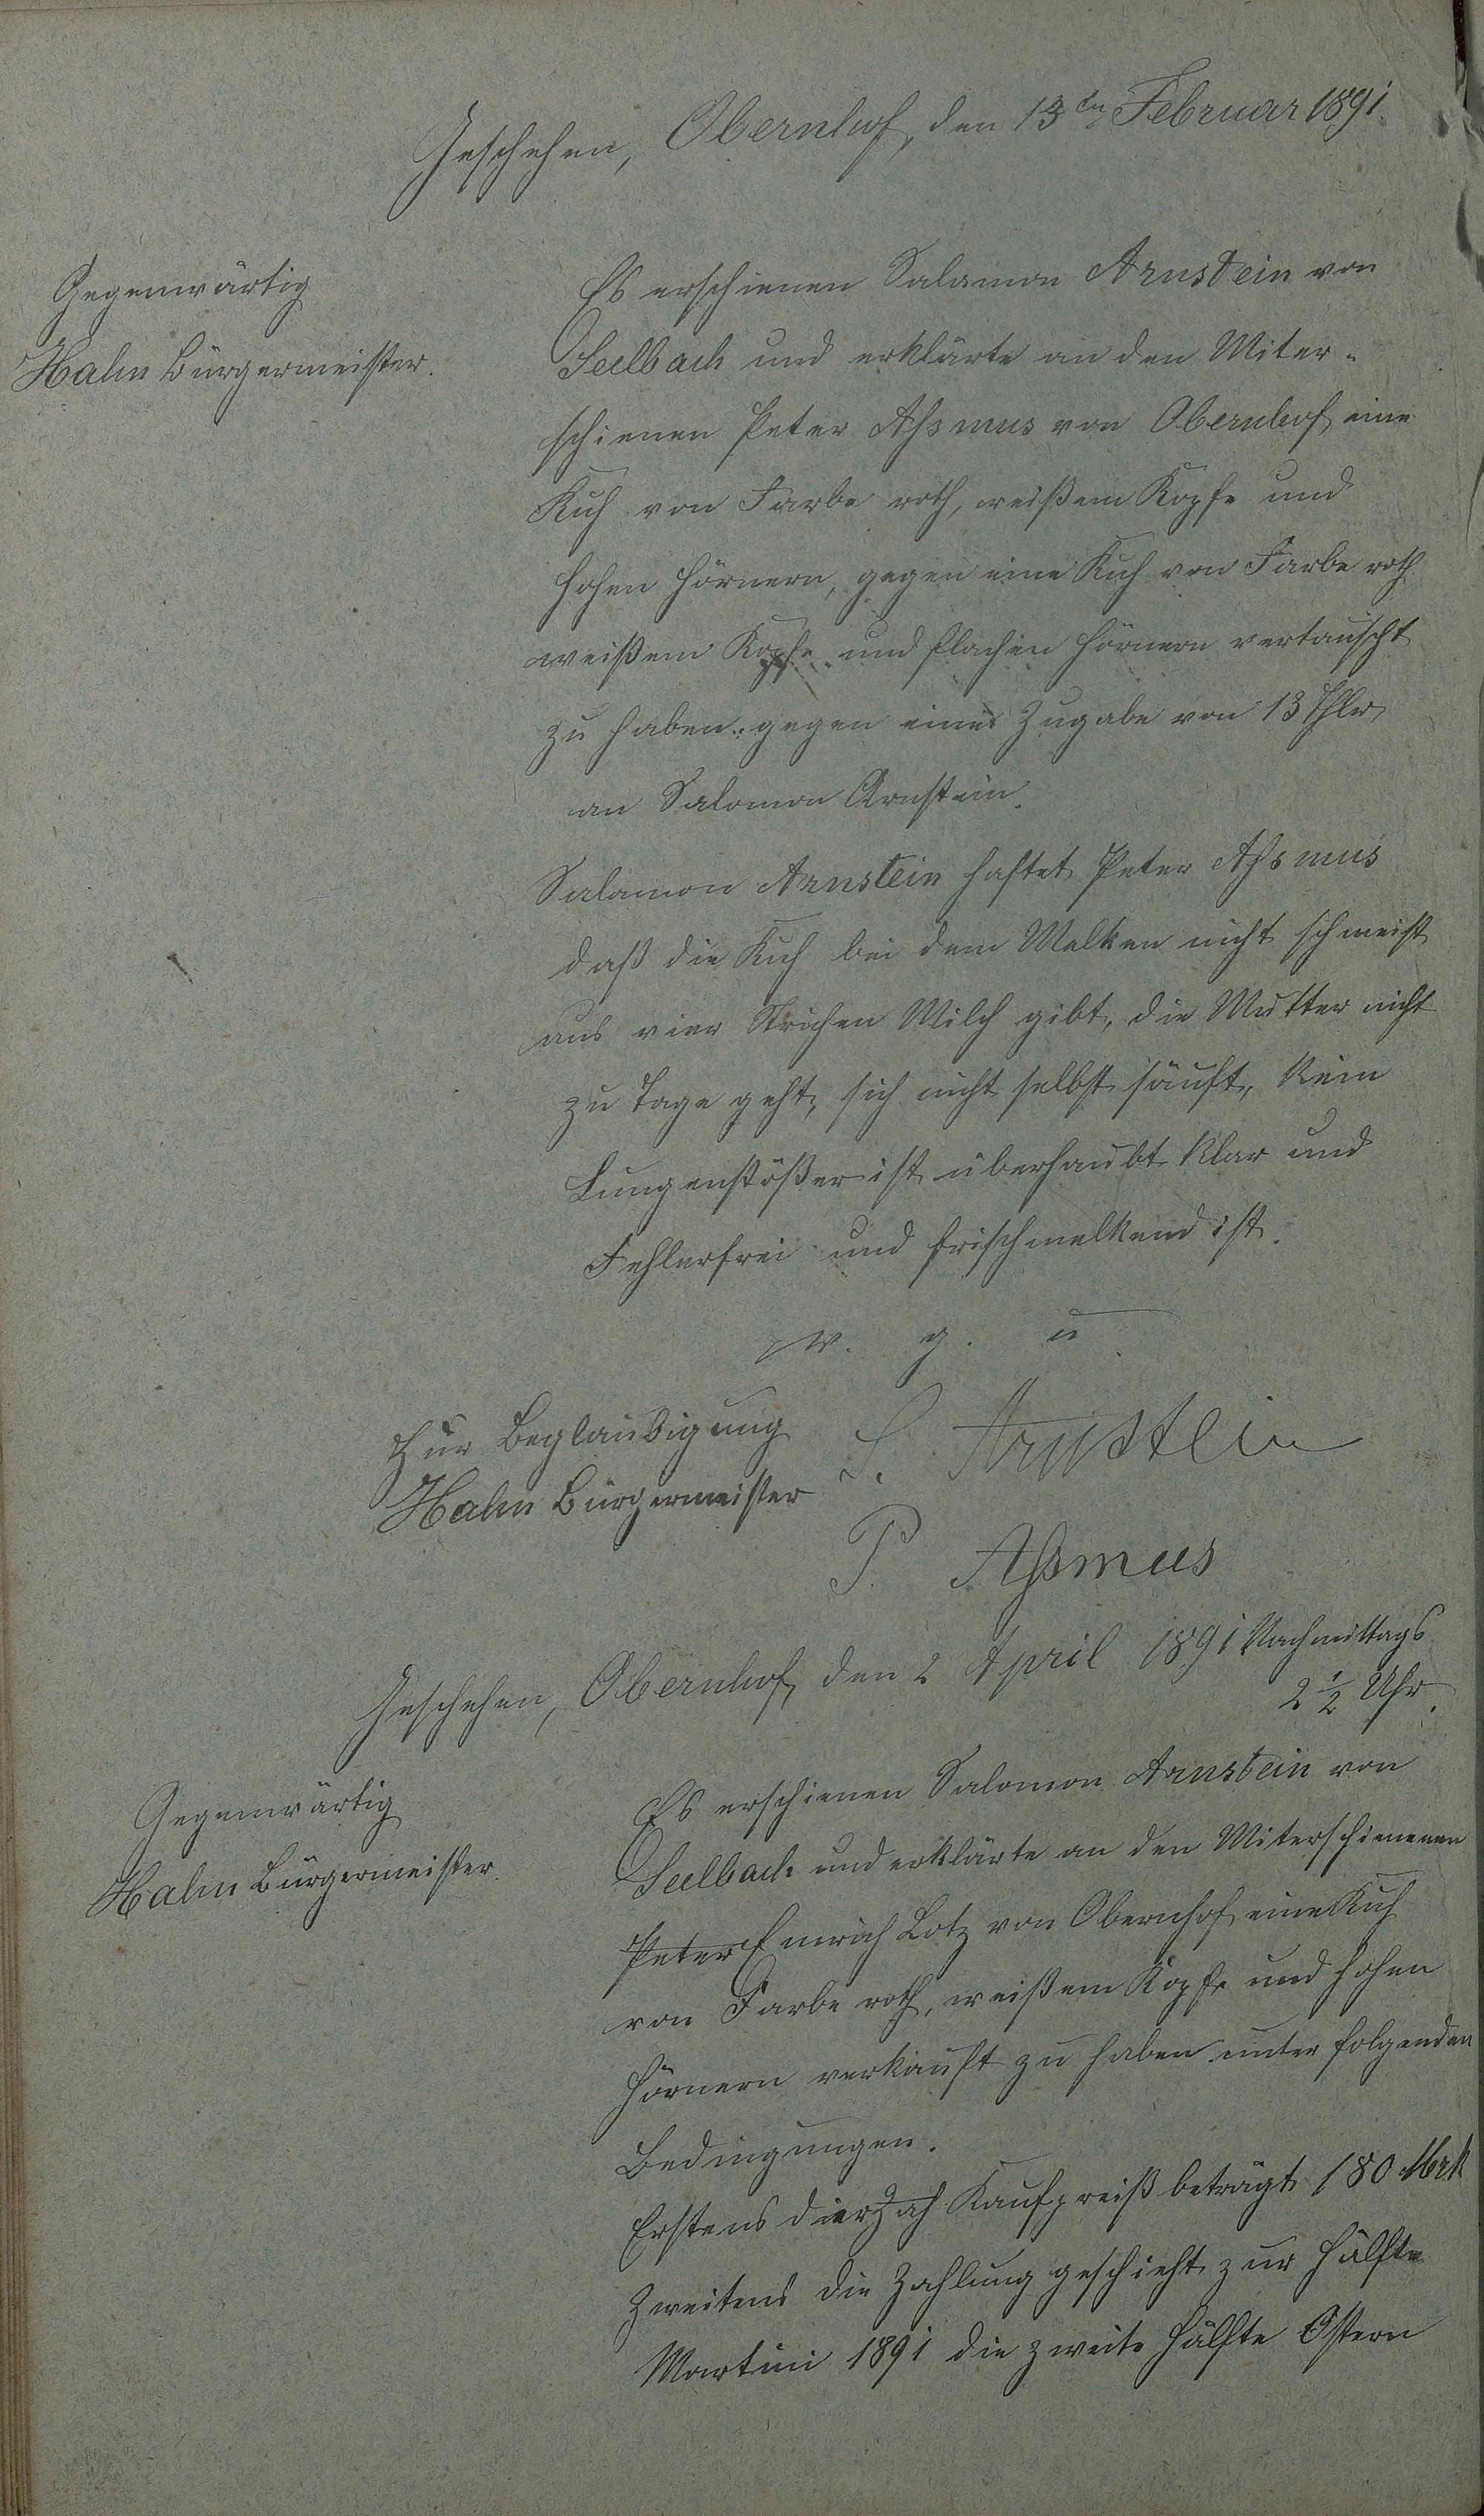 Geschehen, Obernhof, den 13ten Februar 1891.
Gegenwärtig
Hahn Bürgermeister.
Es erschienen Salamon Arnstein von
Seelbach und erklärte an den Miter-
schienen Peter Aßmus von Obernhof, eine
Kuh von Farbe roth, weißem Kopfe und
hohen Hörnern, gegen eine Kuh von Farbe roth
weißem Kopfe und flachen Hörnern vertauscht
zu haben. gegen eine Zugabe von 13 Thlr
an Salomon Arnstein.
Salamon Arnstein haftet Peter Aßmus
daß die Kuh bei dem Melken nicht schmeist
aus vier Strichen Milch gibt, die Mutter nicht
zu Tage geht, sich nicht selbst säuft, kein
Lungenstößer ist überhaubt klar und
Fehlerfrei und frischmelkend ist.
v. g. u
Zur Beglaubigung
Hahn Bürgermeister
S. Arnstein
P. Aßmus
Geschehen, Obernhof, den 2 April 1891 Nachmittags
2 1/2 Uhr.
Gegenwärtig
Hahn Bürgermeister.
Es erschienen Salomon Arnstein von
Seelbach und erklärte an den Miterschienenen
Peter Emrich Lotz von Obernhof eine Kuh
von Farbe roth, weißem Kopfe und hohen
Hörnern verkauft zu haben unter folgenden
Bedingungen.
Erstens der Zah Kaufpreiß beträgt 180 Mrk
Zweitens die Zahlung geschieht zur Hälfte
Martini 1891 die zweite Hälfte Ostern